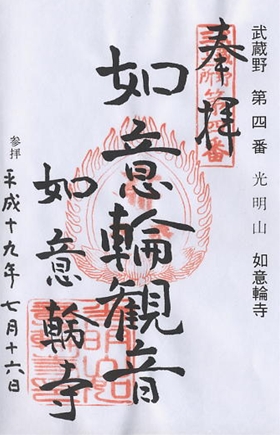 武蔵野 第四番 光明山 如意輪寺
奉拝
第四番
如意輪観音
如意輪寺
参拝
平成十九年七月十六日